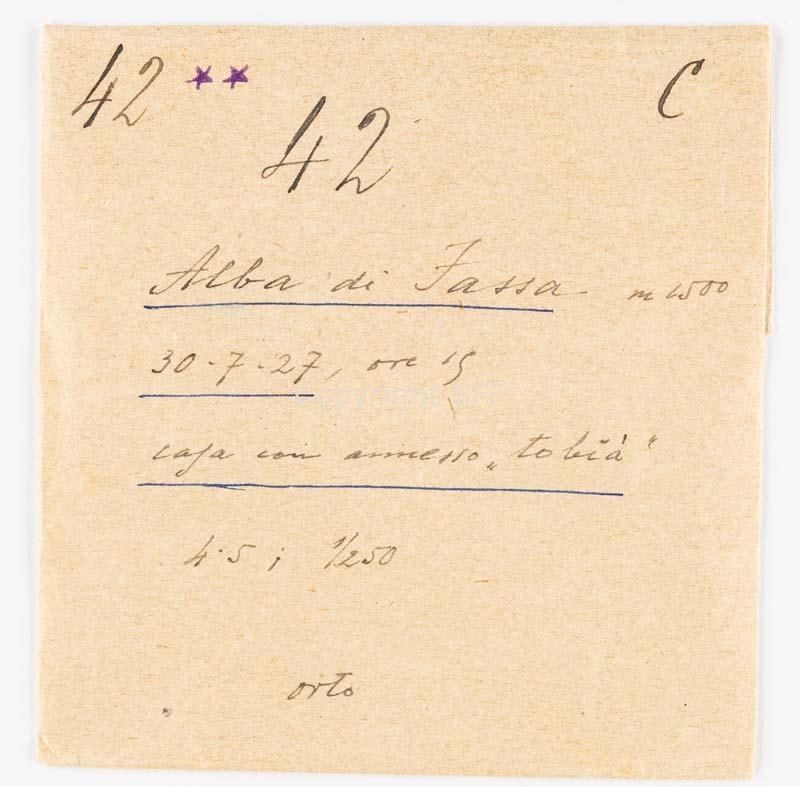 42 ** C
42
Alba di Fassa m 1500
30.7.27, ore 15
casa con annesso „tobià"
4.5 ; 1/250
orto